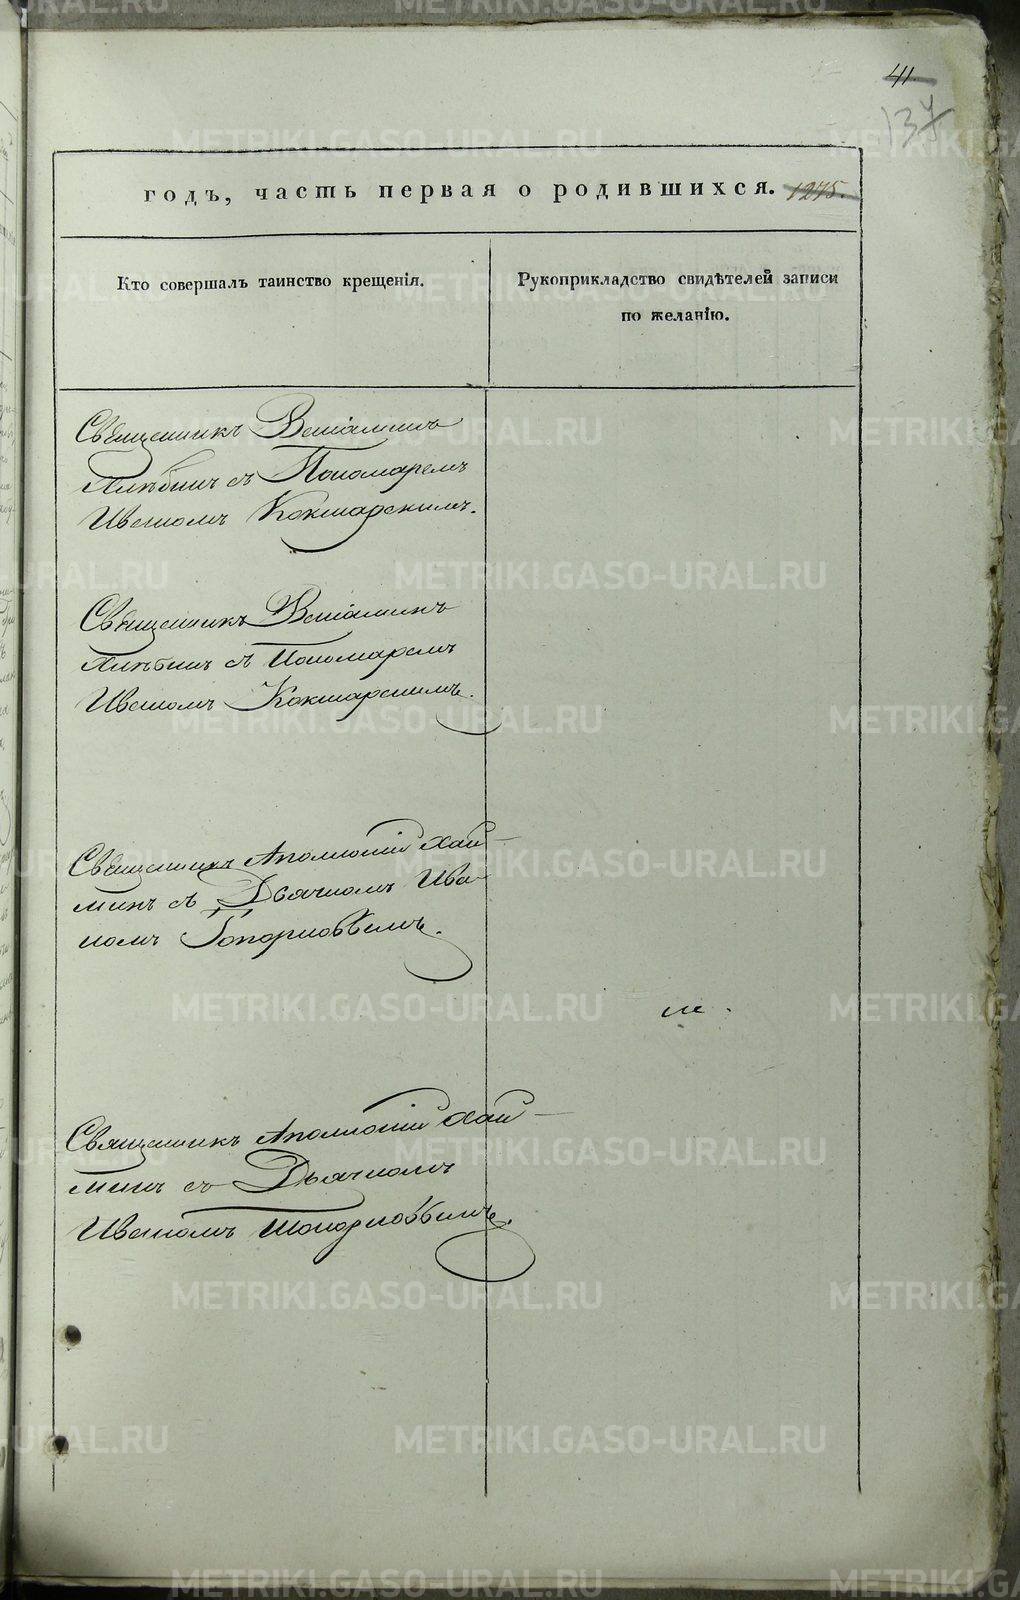 41.
134
годъ, часть первая о родившихся. 1275.
Кто совершалъ таинство крещенія.
Рукоприкладство свидѣтелей записи
по желанію.
Священникъ Веніаминъ
Хлѣбинъ съ Пономаремъ
Иваномъ Кокшарскимъ.
Священникъ Веніаминъ
Хлѣбинъ съ Пономаремъ
Иваномъ Кокшарскимъ.
Священникъ Аполлоній Хай-
минъ съ Дьячкомъ Ива-
номъ Топорковымъ.
Священникъ Аполлоній Хай-
минъ съ Дьячкомъ
Иваномъ Топорковымъ.
METRIKI.GASO-URAL.RU